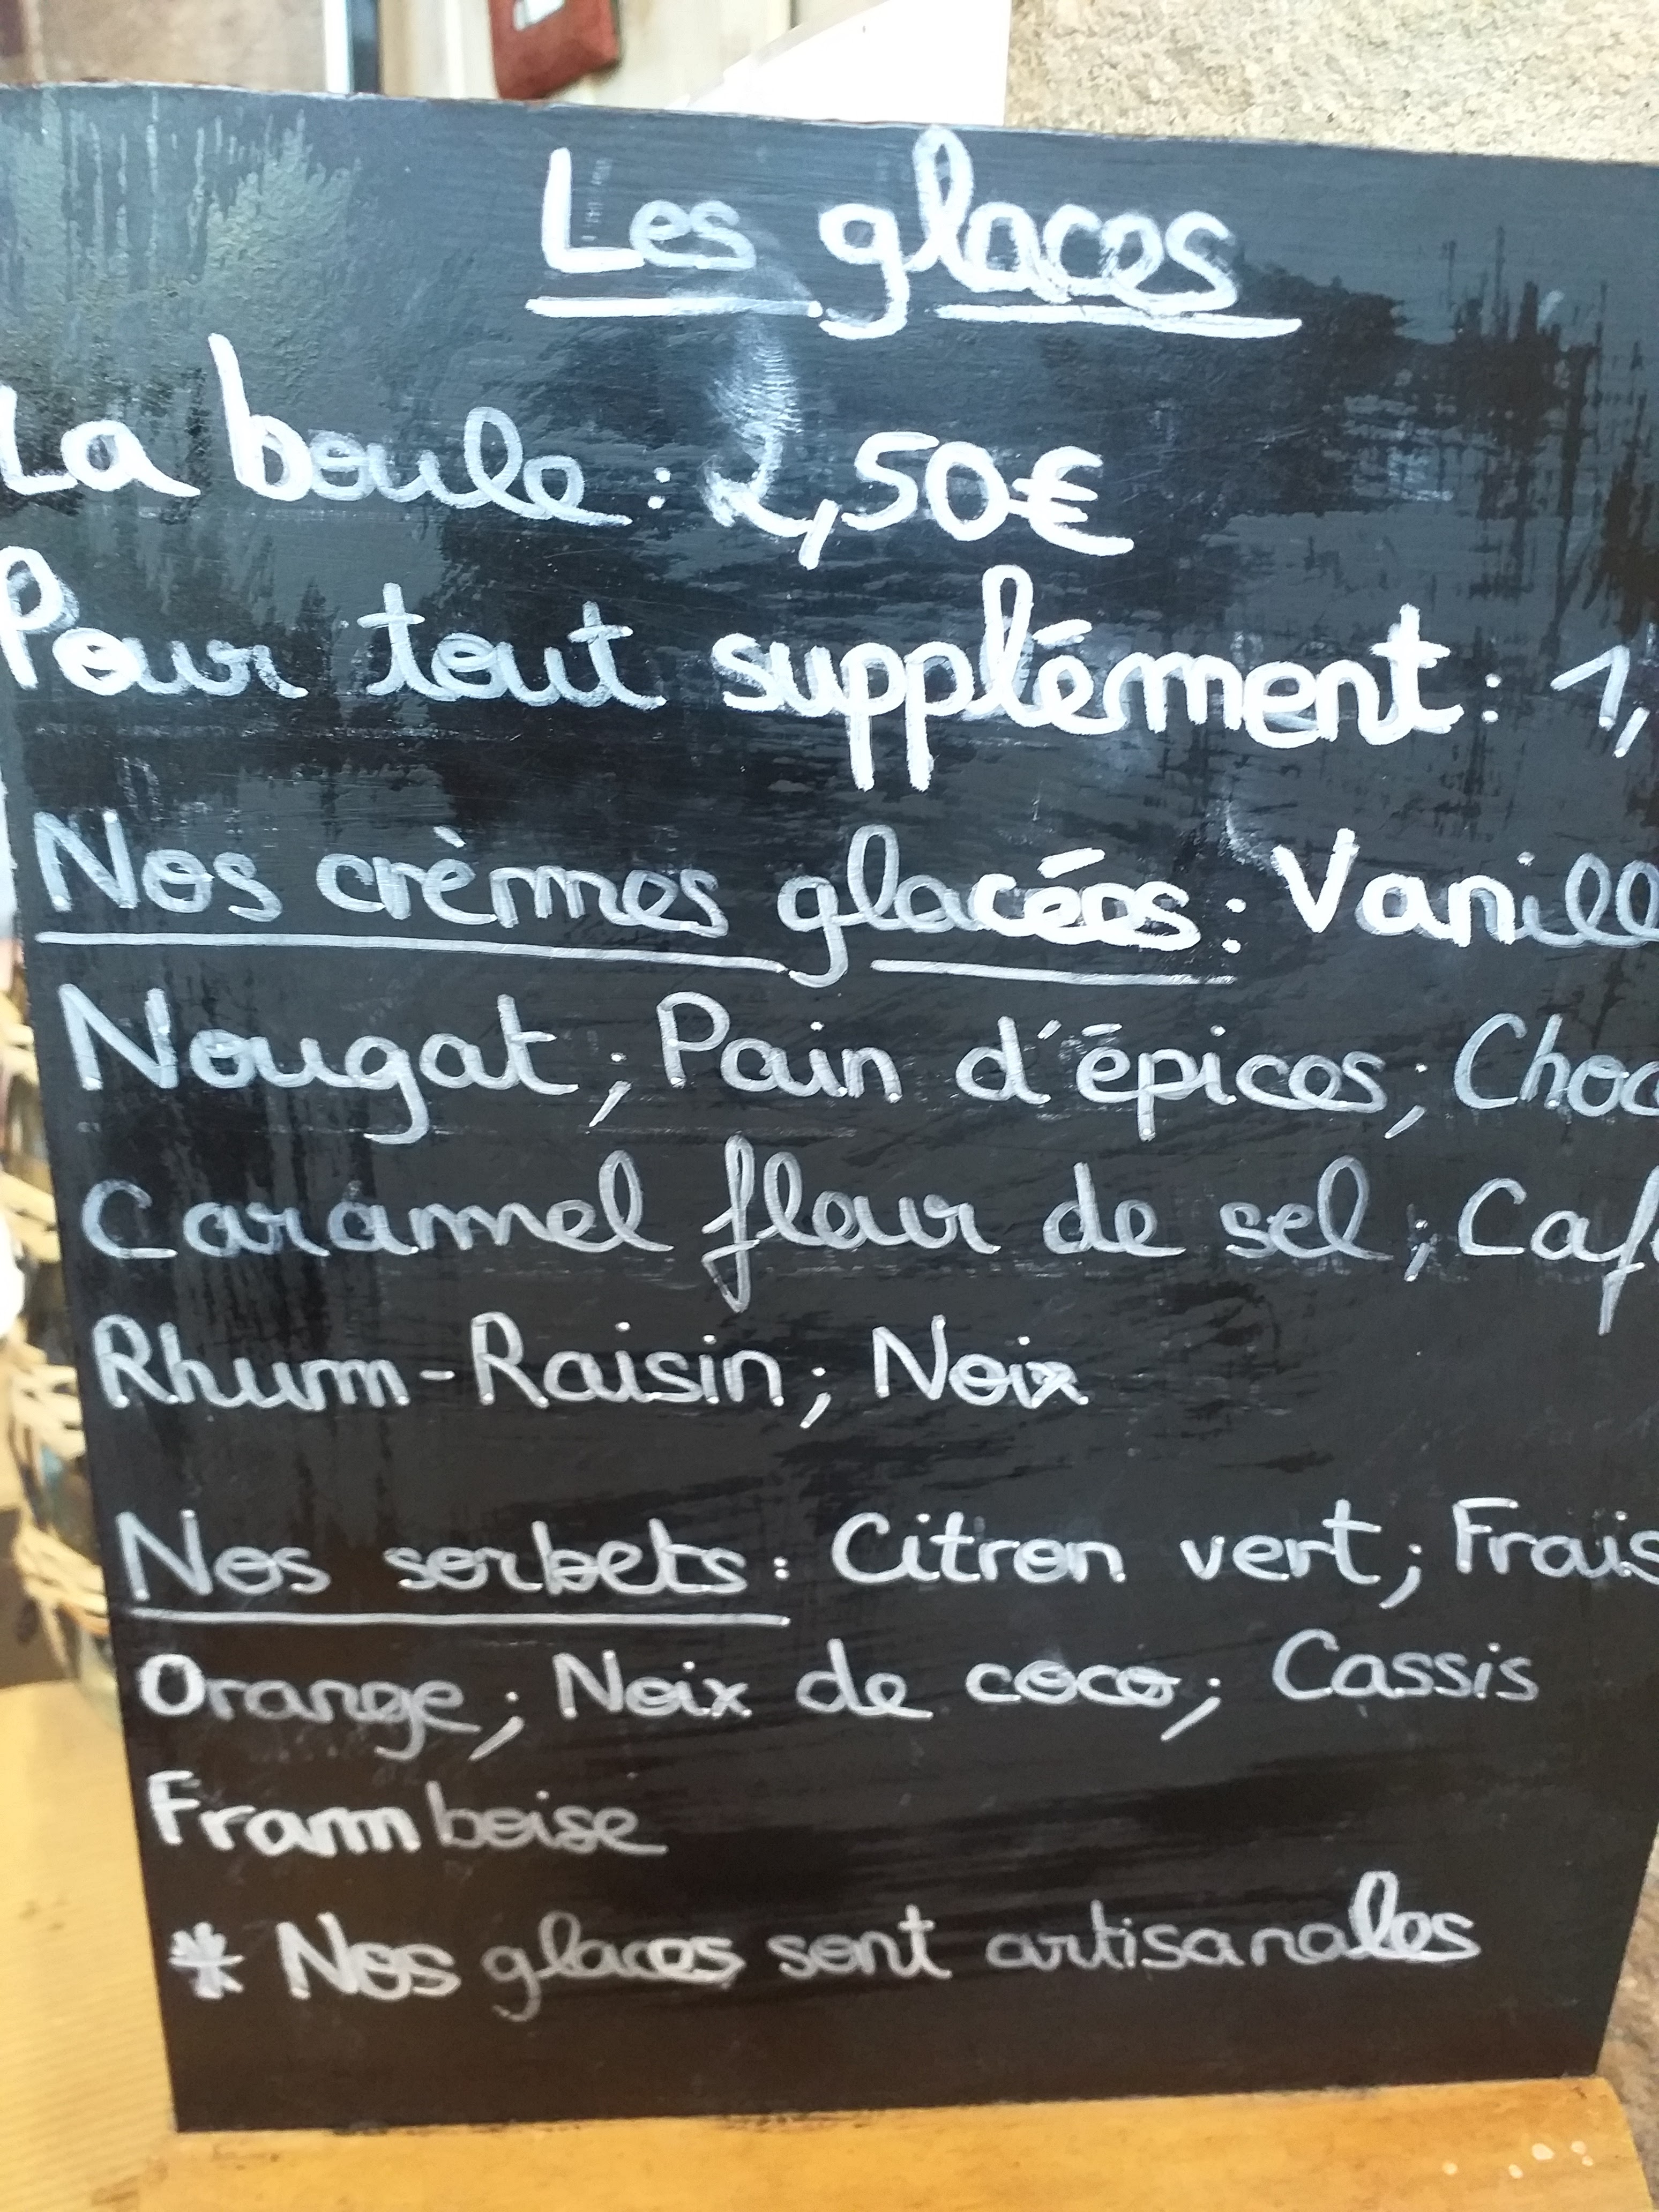 Les glaces
La boule : 2,50€
Pour tout supplément : 1,
Nos crèmes glacées : Vanill
Nougat ; Pain d'épices ; Choc
Caramel fleur de sel ; Caf
Rhum-Raisin ; Noix
Nos sorbets : Citron vert ; Frais
Orange ; Noix de coco ; Cassis
Framboise
* Nos glaces sont artisanales